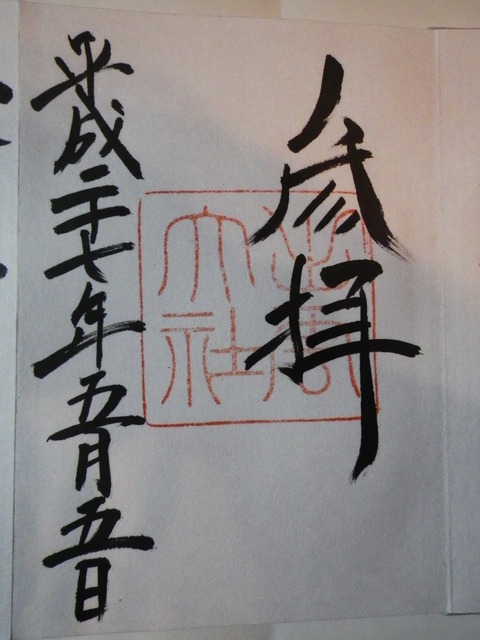 参拝
出雲
大社
平成二十七年五月五日